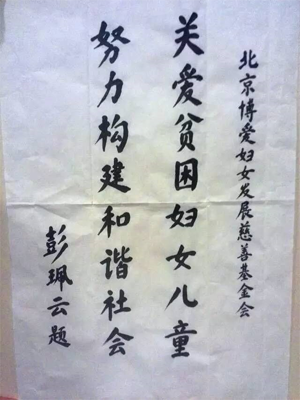 北京博爱妇女发展慈善基金会
关爱贫困妇女儿童
努力构建和谐社会
彭珮云题